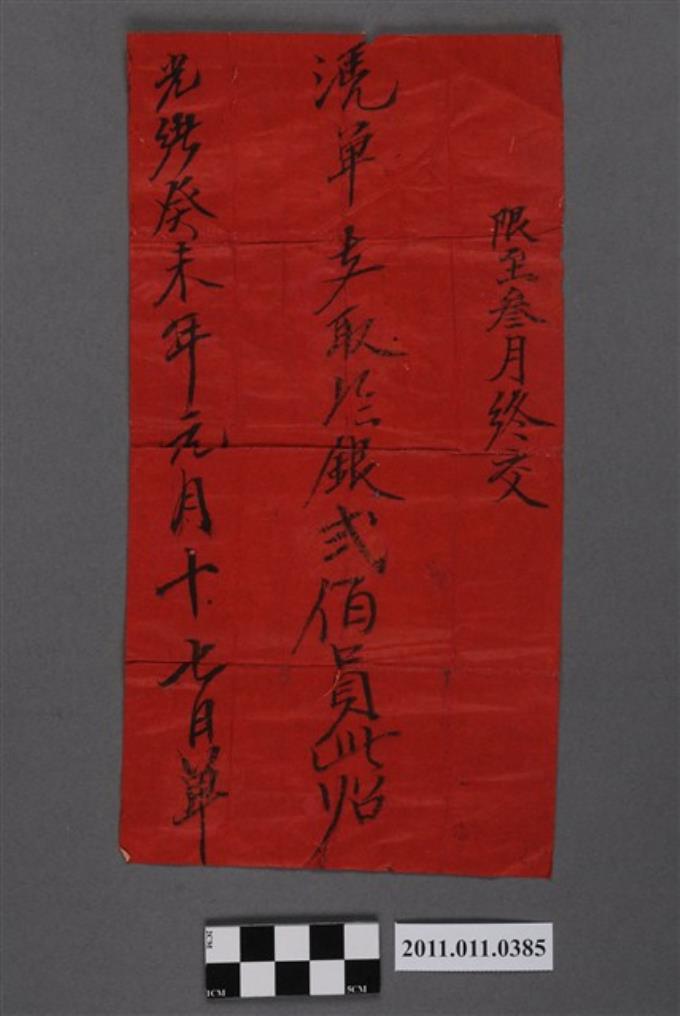 限至叁月終交
憑单支取佛銀弍佰員此炤
光緒癸未年元月十七日單
2CM
1CM
5CM
2011.011.0385